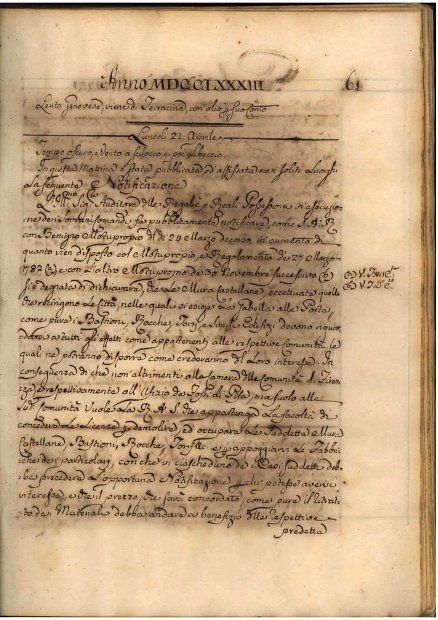 Anno MDCCLXXXIII 61
Leuto Genovese, viene di Terracina, con olio p suo Conto
Lunedì 21. Aprile
Tempo oscuro, e Vento a scilocco e poi Libeccio
In questa Mattina è stata pubblicata, ed affissata nei soliti Luoghi
La seguente Notificazione
L' Auditore delle Regalie, e Reali Possessioni in esecuzione
dei Sovrani Comandi fa pubblicamente notificare, come S. A. R.
con Benigno Motuproprio de' 24 Marzo decorso, in aumento di
quanto vien disposto col Motuproprio, e Regolamento de' 27 Marzo
1782 (a) e con L'altro Motuproprio de' 30 Novembre successivo (b)
si è degnata di dichiarare, che le Mura Castellane, eccettuate quelle
che recingono Le Città, nelle quali si esige La Gabella alle Porte,
come pure i Bastioni, Rocche, Torri, e simili Edifizi devano riguardarsi
a tutti gli effetti come appartenenti alle respettive Comunità, le
quali ne potranno disporre come crederanno di Loro interesse. In
conseguenza di che non altrimenti alla Camera delle Comunità di Firenze
e respettivamente all'Ufizio dei Fossi di Pisa, ma solo alle
Comunità Vuole La R. A. S. che appartenga La facoltà di
concedere Le Licenze p demolire, ed occupare Le suddette Mura
Castellane, Bastioni, Rocche, Torri &c. e p appoggiarvi Le Fabbriche
dei particolari, con che in ciascheduno dei Casi suddetti debba
precedere L'opportuna Notificazione p chi potesse avervi
interesse, e che il prezzo che sarà concordato, come pure il ritratto
dei Materiali debba andare a benefizio delle respettive
predette